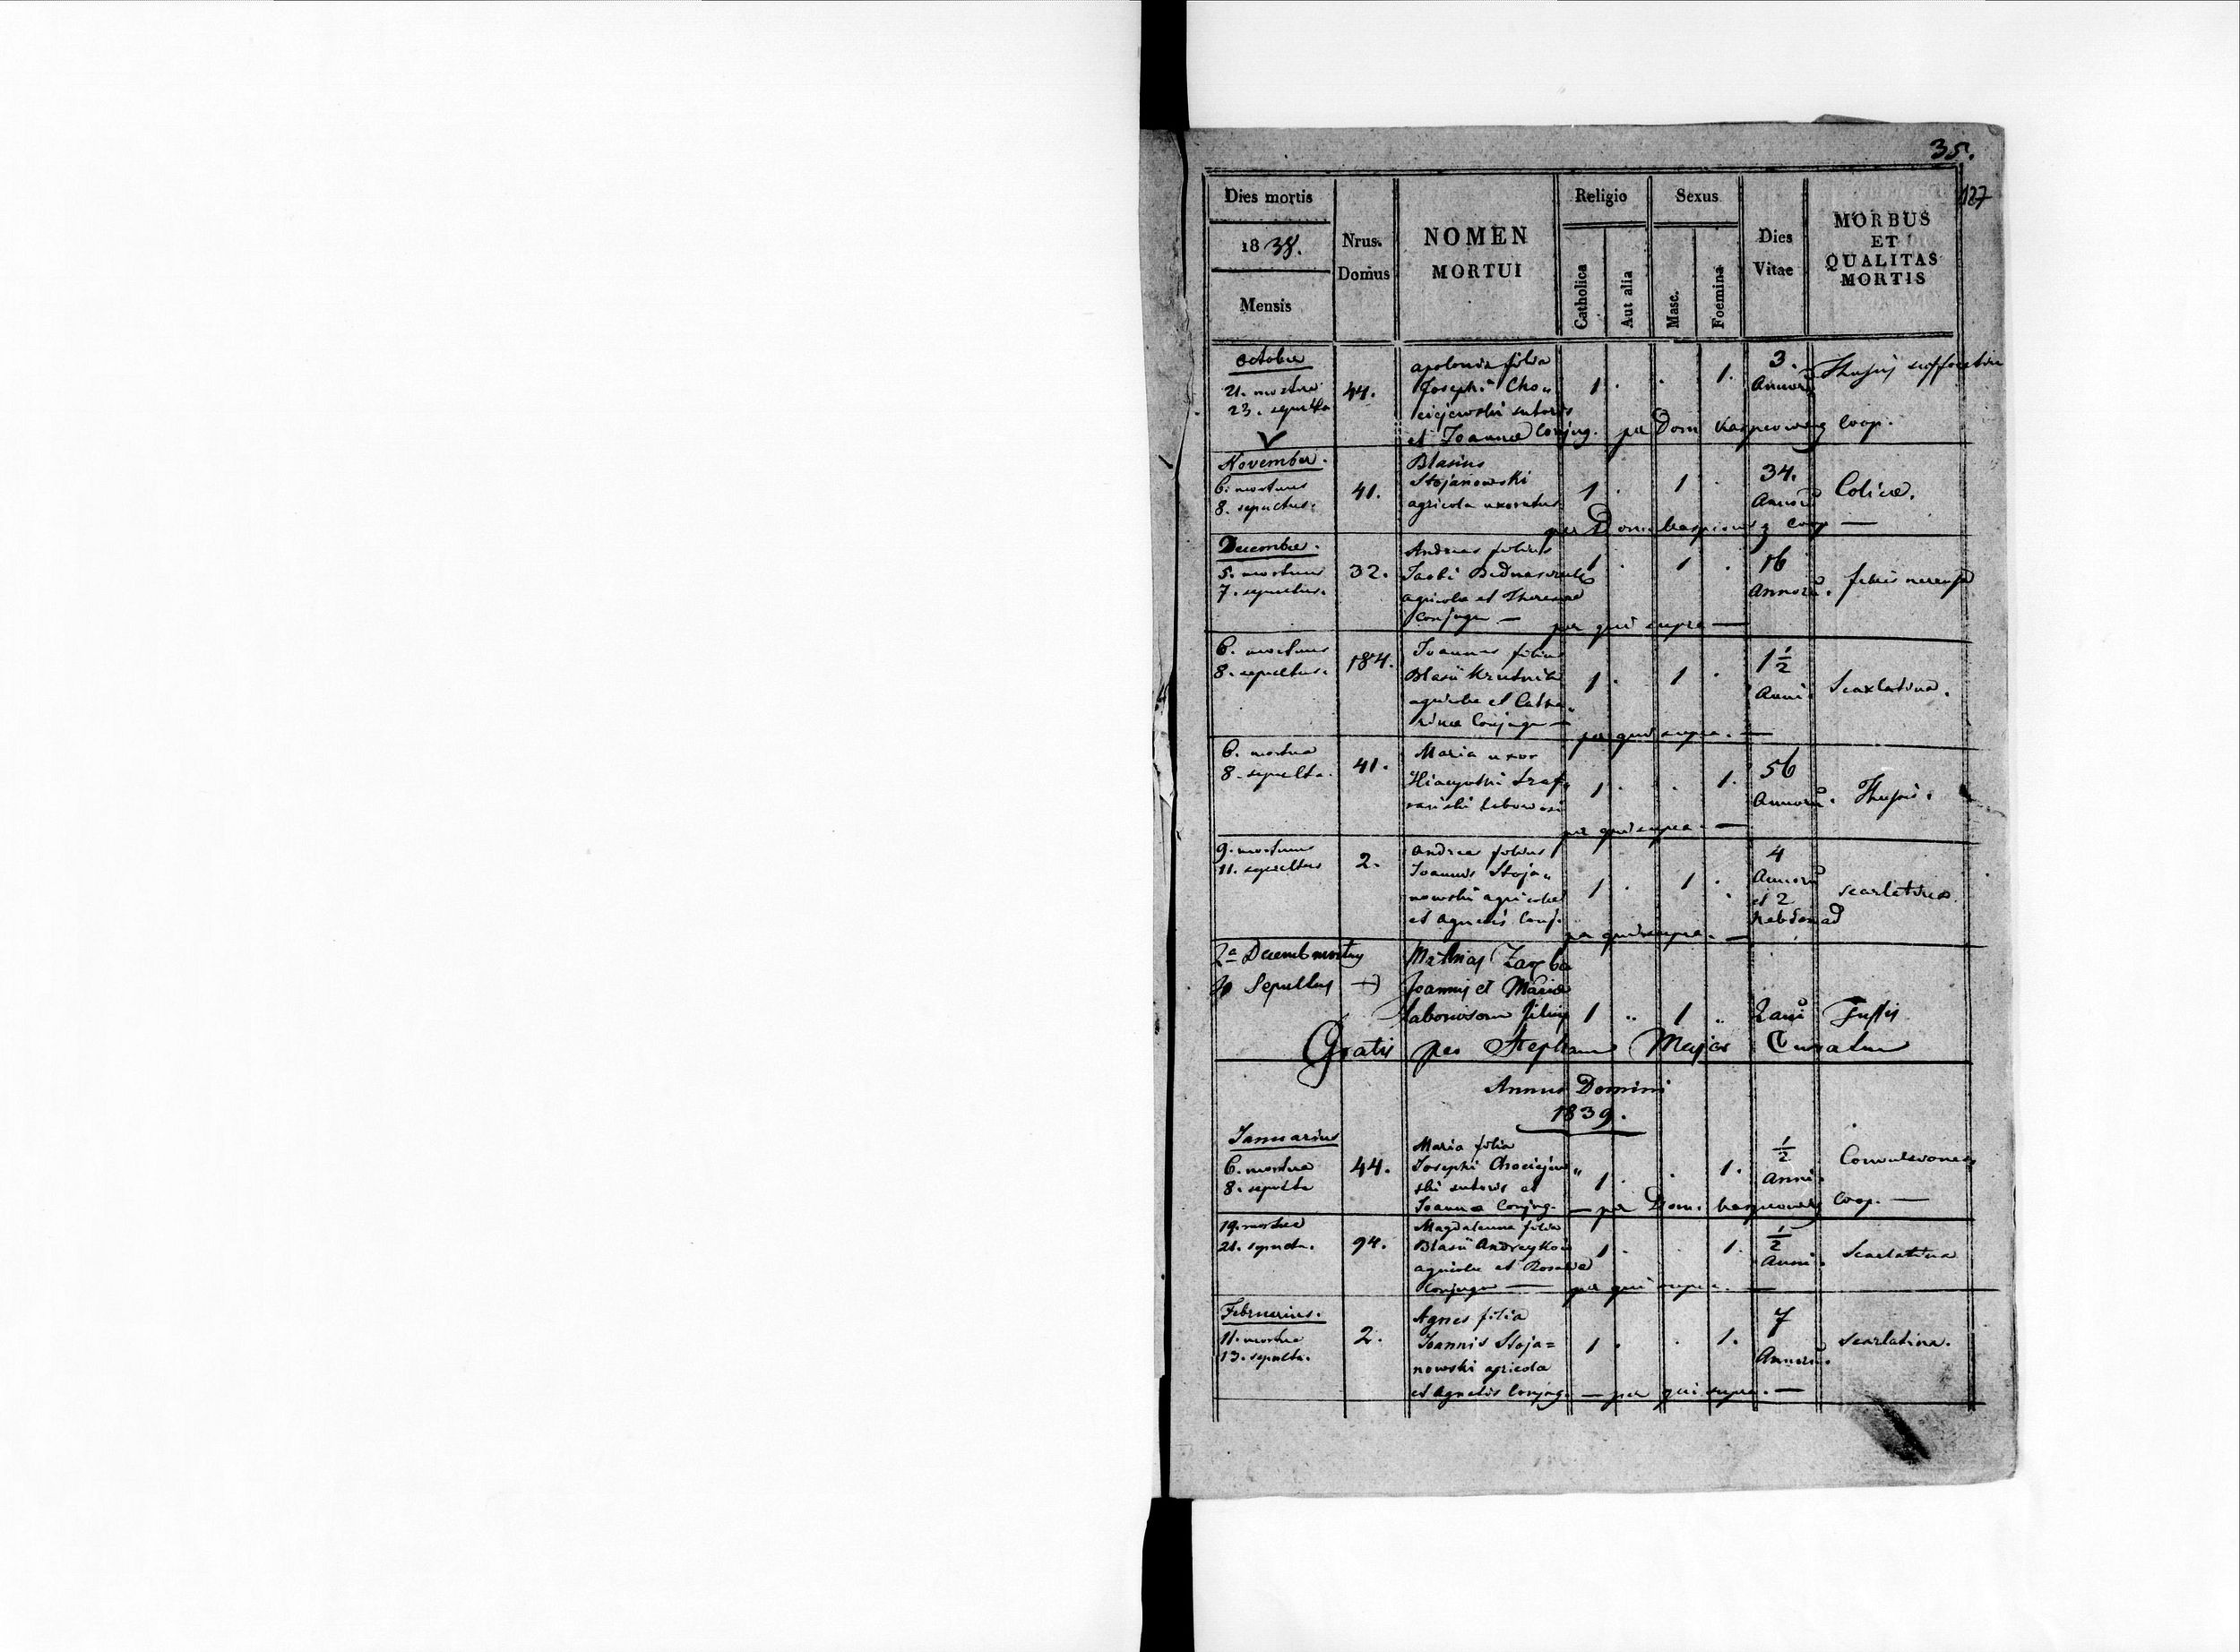 35.
187
Dies mortis
1838.
Mensis
Nrus. Domus
NOMEN MORTUI
Religio
Catholica
Aut alia
Sexus
Masc.
Foemina
Dies Vitae
MORBUS ET QUALITAS MORTIS
October
21. mortua
23. sepulta
44.
Apolonia filia
Josephi Cho„
ciejewski sutoris
et Joannae Conjug.
1 . . 1.
3.
Annoru
Thussis suffocativa
per Dom Coop.
November.
6. mortuus
8. sepultus.
41.
Blasius
Stojanowski
agricola uxoratus
1 . 1 .
34.
Annoru
Colica.
per Dom. Coop —
December.
5. mortuus
7. sepultus.
32.
Andreas filius
agricolae et Theresiae
Conjugu —
1 . 1 .
16
Annoru.
febris nervosa
per qui supra —
6. mortuus
8. sepultus.
184.
Joannes filius
Blasii Krutnik
agricolae et Catha„
rinae Conjugu —
1 . 1 .
1 1/2
Anni.
Scarlatina.
per qui supra. —
6. mortua
8. sepulta.
41.
Maria uxor
Hiacynthi Szaf„
1 . . 1.
56
Annoru.
Thussis.
per qui supra. —
9. mortuus
11. sepultus
2.
Andreas filius
Joannis Stoja„
nowski agricolae
et Agnetis Conj.
1 . 1 .
4
Annoru
et 2
hebdomad
scarlatina.
per qui supra. —
2a Decemb mortuus
4 Sepultus
Mathias Zaremba
Joannis et Mariae
Laboriosoru filius
1 „ 1 „
2 ani
Tussis
Gratis per Stephanu Major Curatum
Annus Domini
1839.
Januarius
6. mortua
8. sepulta
44.
Maria filia
Josephi Chociejew„
ski sutoris et
Joannae Conjug.
1 . . 1.
1/2
Anni.
Convulsiones
— per Dom. Coop. —
19. mortua
21. sepulta.
94.
Magdalenna filia
Blasii Andreyków
agricolae et Rosaliae
Conjugu —
1 . . 1.
1/2
Anni.
Scarlatina
per qui supra. —
Februarius.
11. mortua
13. sepulta.
2.
Agnes filia
Joannis Stoja=
nowski agricola
et Agnetis Conjug.
1 . . 1.
7
Annoru.
scarlatina.
— per qui supra. —